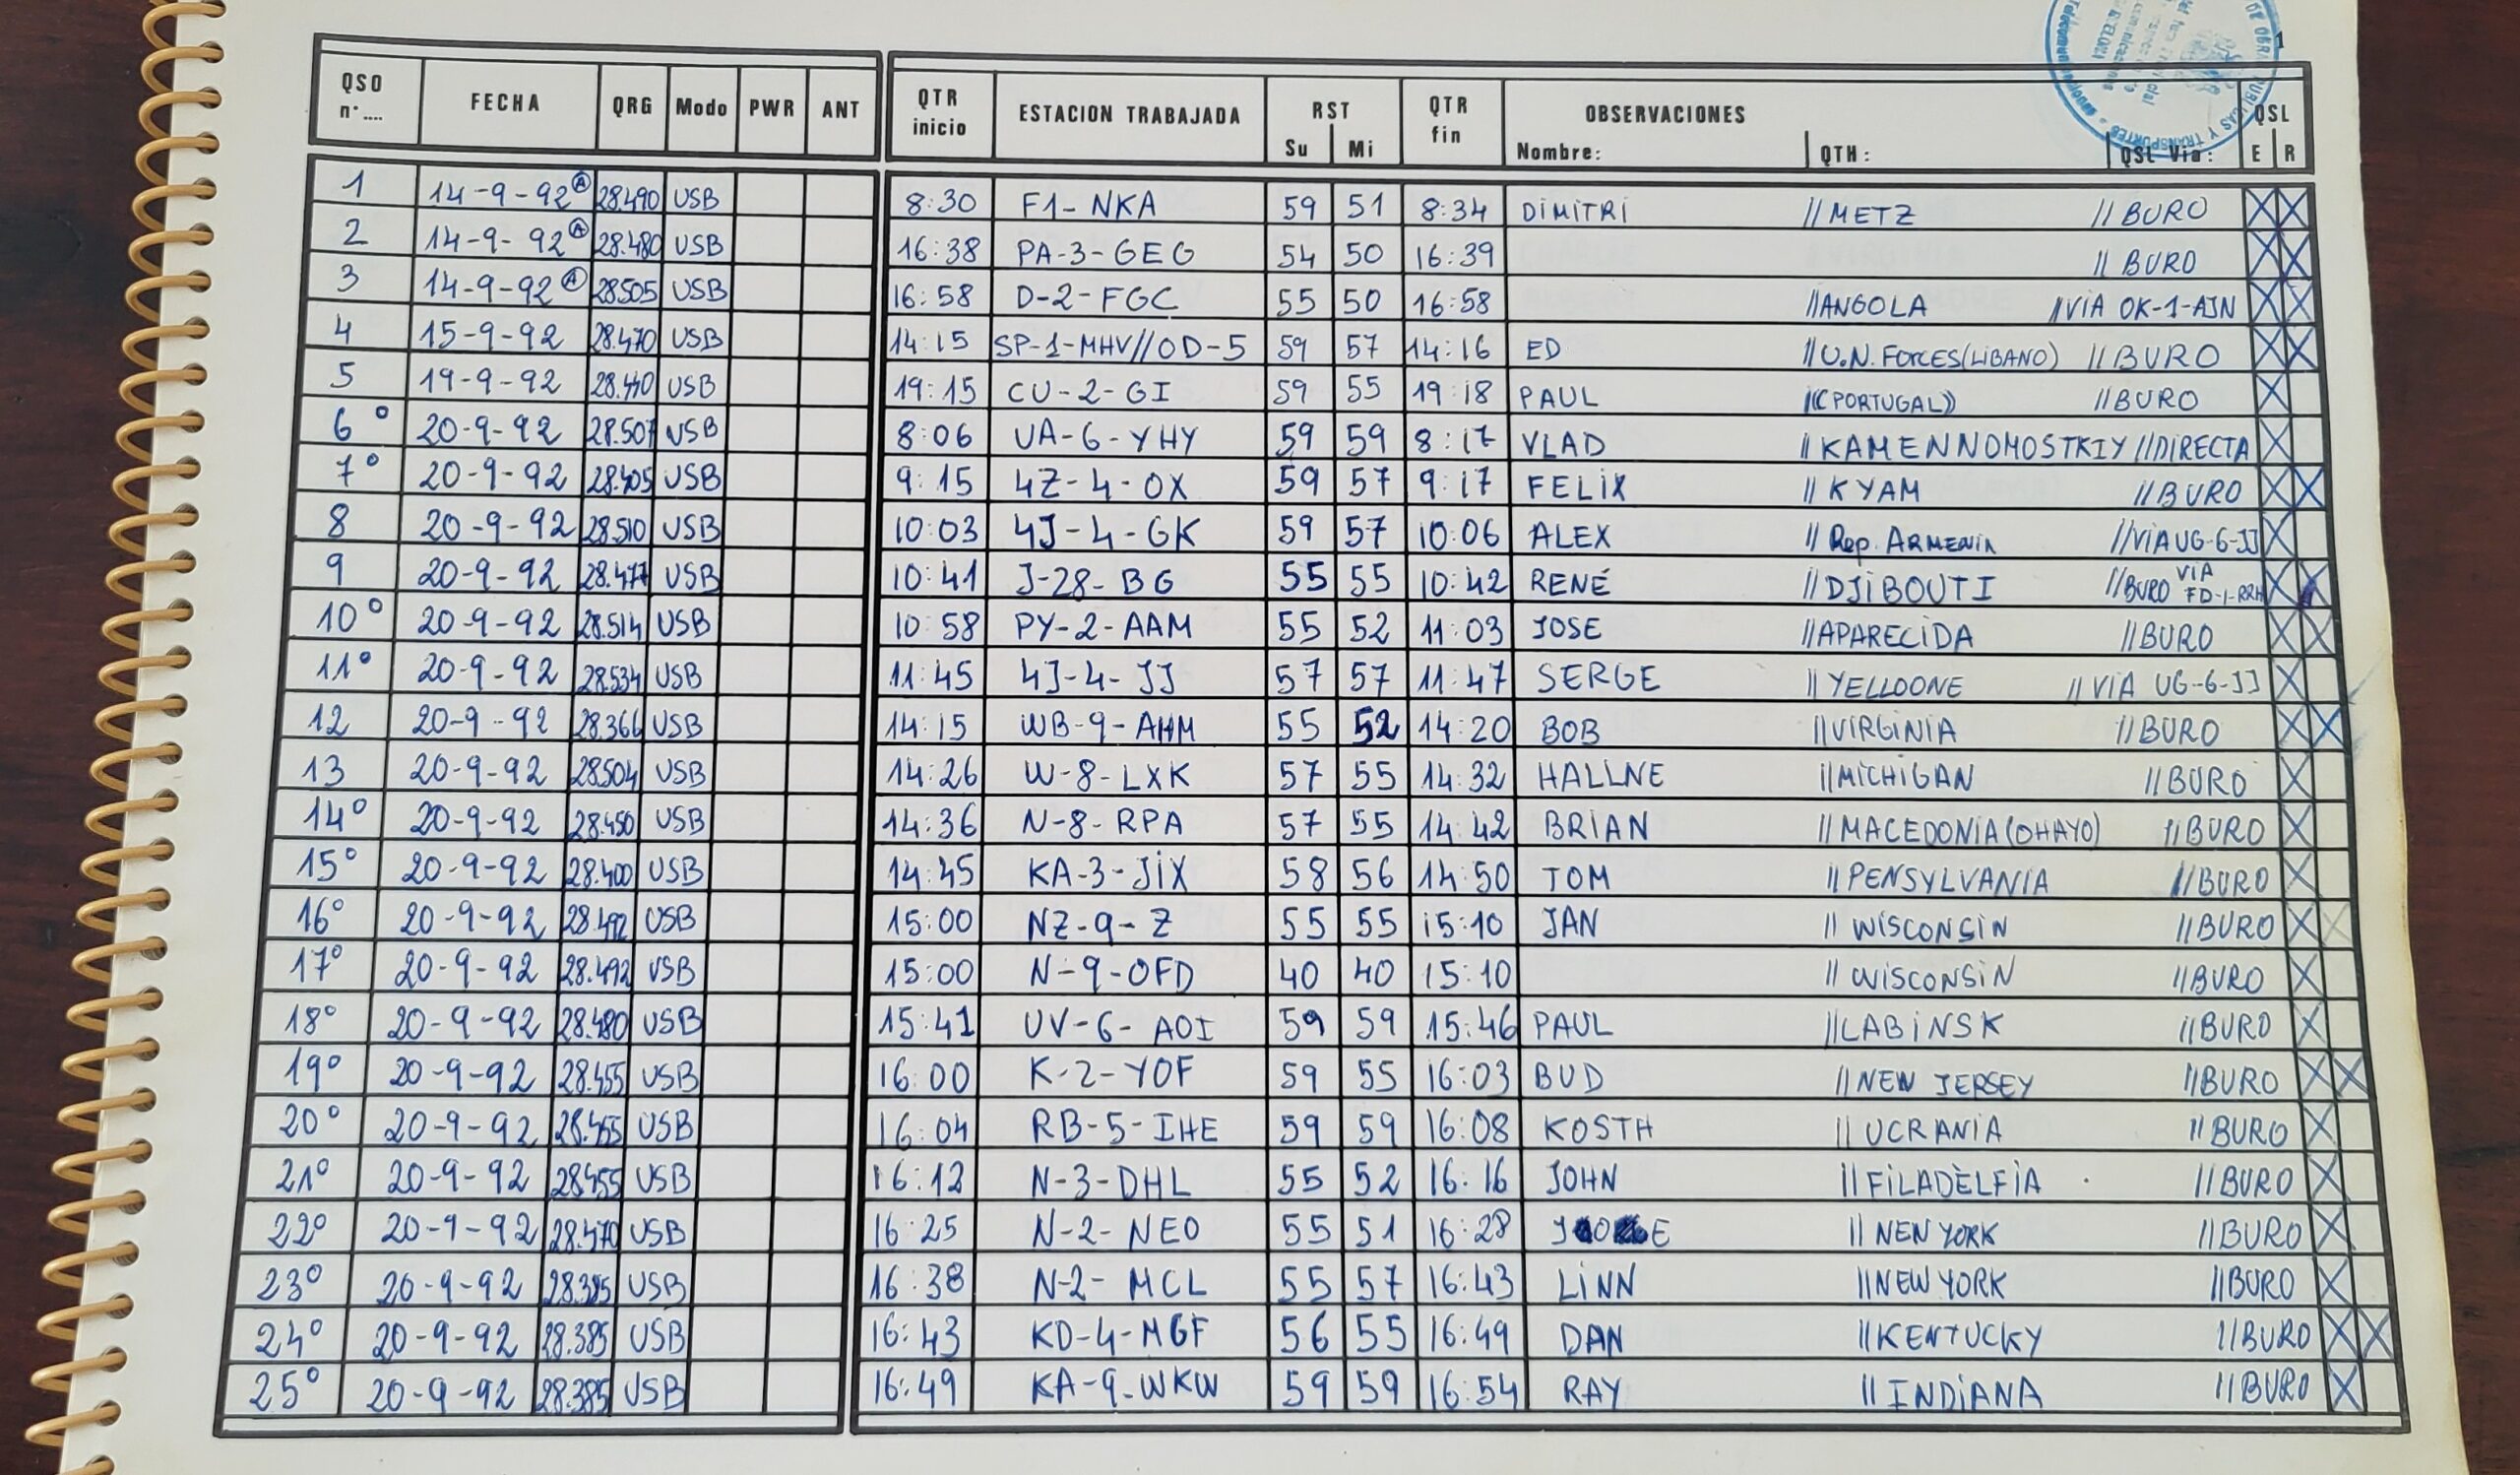 1
DE OBRAS PUBLICAS Y TRANSPORTES
QSO n°.... FECHA QRG Modo PWR ANT QTR inicio ESTACION TRABAJADA RST Su Mi QTR fin OBSERVACIONES Nombre: QTH: QSL Via: QSL E R
1 14-9-92 Ⓐ 28.490 USB 8:30 F1-NKA 59 51 8:34 DIMITRI // METZ // BURO X X
2 14-9-92 Ⓐ 28.480 USB 16:38 PA-3-GEG 54 50 16:39 // BURO X X
3 14-9-92 Ⓐ 28.505 USB 16:58 D-2-FGC 55 50 16:58 // ANGOLA // VIA OK-1-AJN X X
4 15-9-92 28.470 USB 14:15 SP-1-MHV//OD-5 59 57 14:16 ED // U.N. FORCES (LIBANO) // BURO X X
5 19-9-92 28.440 USB 19:15 CU-2-GI 59 55 19:18 PAUL ((PORTUGAL)) // BURO X
6° 20-9-92 28.507 USB 8:06 UA-6-YHY 59 59 8:17 VLAD // KAMENNOMOSTKIY // DIRECTA X
7° 20-9-92 28.405 USB 9:15 4Z-4-OX 59 57 9:17 FELIX // KYAM // BURO X X
8 20-9-92 28.510 USB 10:03 4J-4-GK 59 57 10:06 ALEX // Rep. ARMENIA // VIA UG-6-JJ X
9 20-9-92 28.477 USB 10:41 J-28-BG 55 55 10:42 RENÉ // DJIBOUTI // BURO VIA FD-1-RRH X X
10° 20-9-92 28.514 USB 10:58 PY-2-AAM 55 52 11:03 JOSE // APARECIDA // BURO X X
11° 20-9-92 28.534 USB 11:45 4J-4-JJ 57 57 11:47 SERGE // YELLOONE // VIA UG-6-JJ X
12 20-9-92 28.366 USB 14:15 WB-9-AHM 55 52 14:20 BOB // VIRGINIA // BURO X X
13 20-9-92 28.504 USB 14:26 W-8-LXK 57 55 14:32 HALLNE // MICHIGAN // BURO X
14° 20-9-92 28.450 USB 14:36 N-8-RPA 57 55 14:42 BRIAN // MACEDONIA (OHAYO) // BURO X
15° 20-9-92 28.400 USB 14:45 KA-3-JIX 58 56 14:50 TOM // PENSYLVANIA // BURO X
16° 20-9-92 28.492 USB 15:00 NZ-9-Z 55 55 15:10 JAN // WISCONSIN // BURO X X
17° 20-9-92 28.492 USB 15:00 N-9-OFD 40 40 15:10 // WISCONSIN // BURO X
18° 20-9-92 28.480 USB 15:41 UV-6-AOI 59 59 15:46 PAUL // LABINSK // BURO X
19° 20-9-92 28.455 USB 16:00 K-2-YOF 59 55 16:03 BUD // NEW JERSEY // BURO X X
20° 20-9-92 28.455 USB 16:04 RB-5-IHE 59 59 16:08 KOSTH // UCRANIA // BURO X
21° 20-9-92 28.455 USB 16:12 N-3-DHL 55 52 16:16 JOHN // FILADELFIA // BURO X
22° 20-9-92 28.470 USB 16:25 N-2-NEO 55 51 16:28 // NEW YORK // BURO X
23° 20-9-92 28.385 USB 16:38 N-2-MCL 55 57 16:43 LINN // NEW YORK // BURO X
24° 20-9-92 28.385 USB 16:43 KD-4-MGF 56 55 16:49 DAN // KENTUCKY // BURO X X
25° 20-9-92 28.385 USB 16:49 KA-9-WKW 59 59 16:54 RAY // INDIANA // BURO X